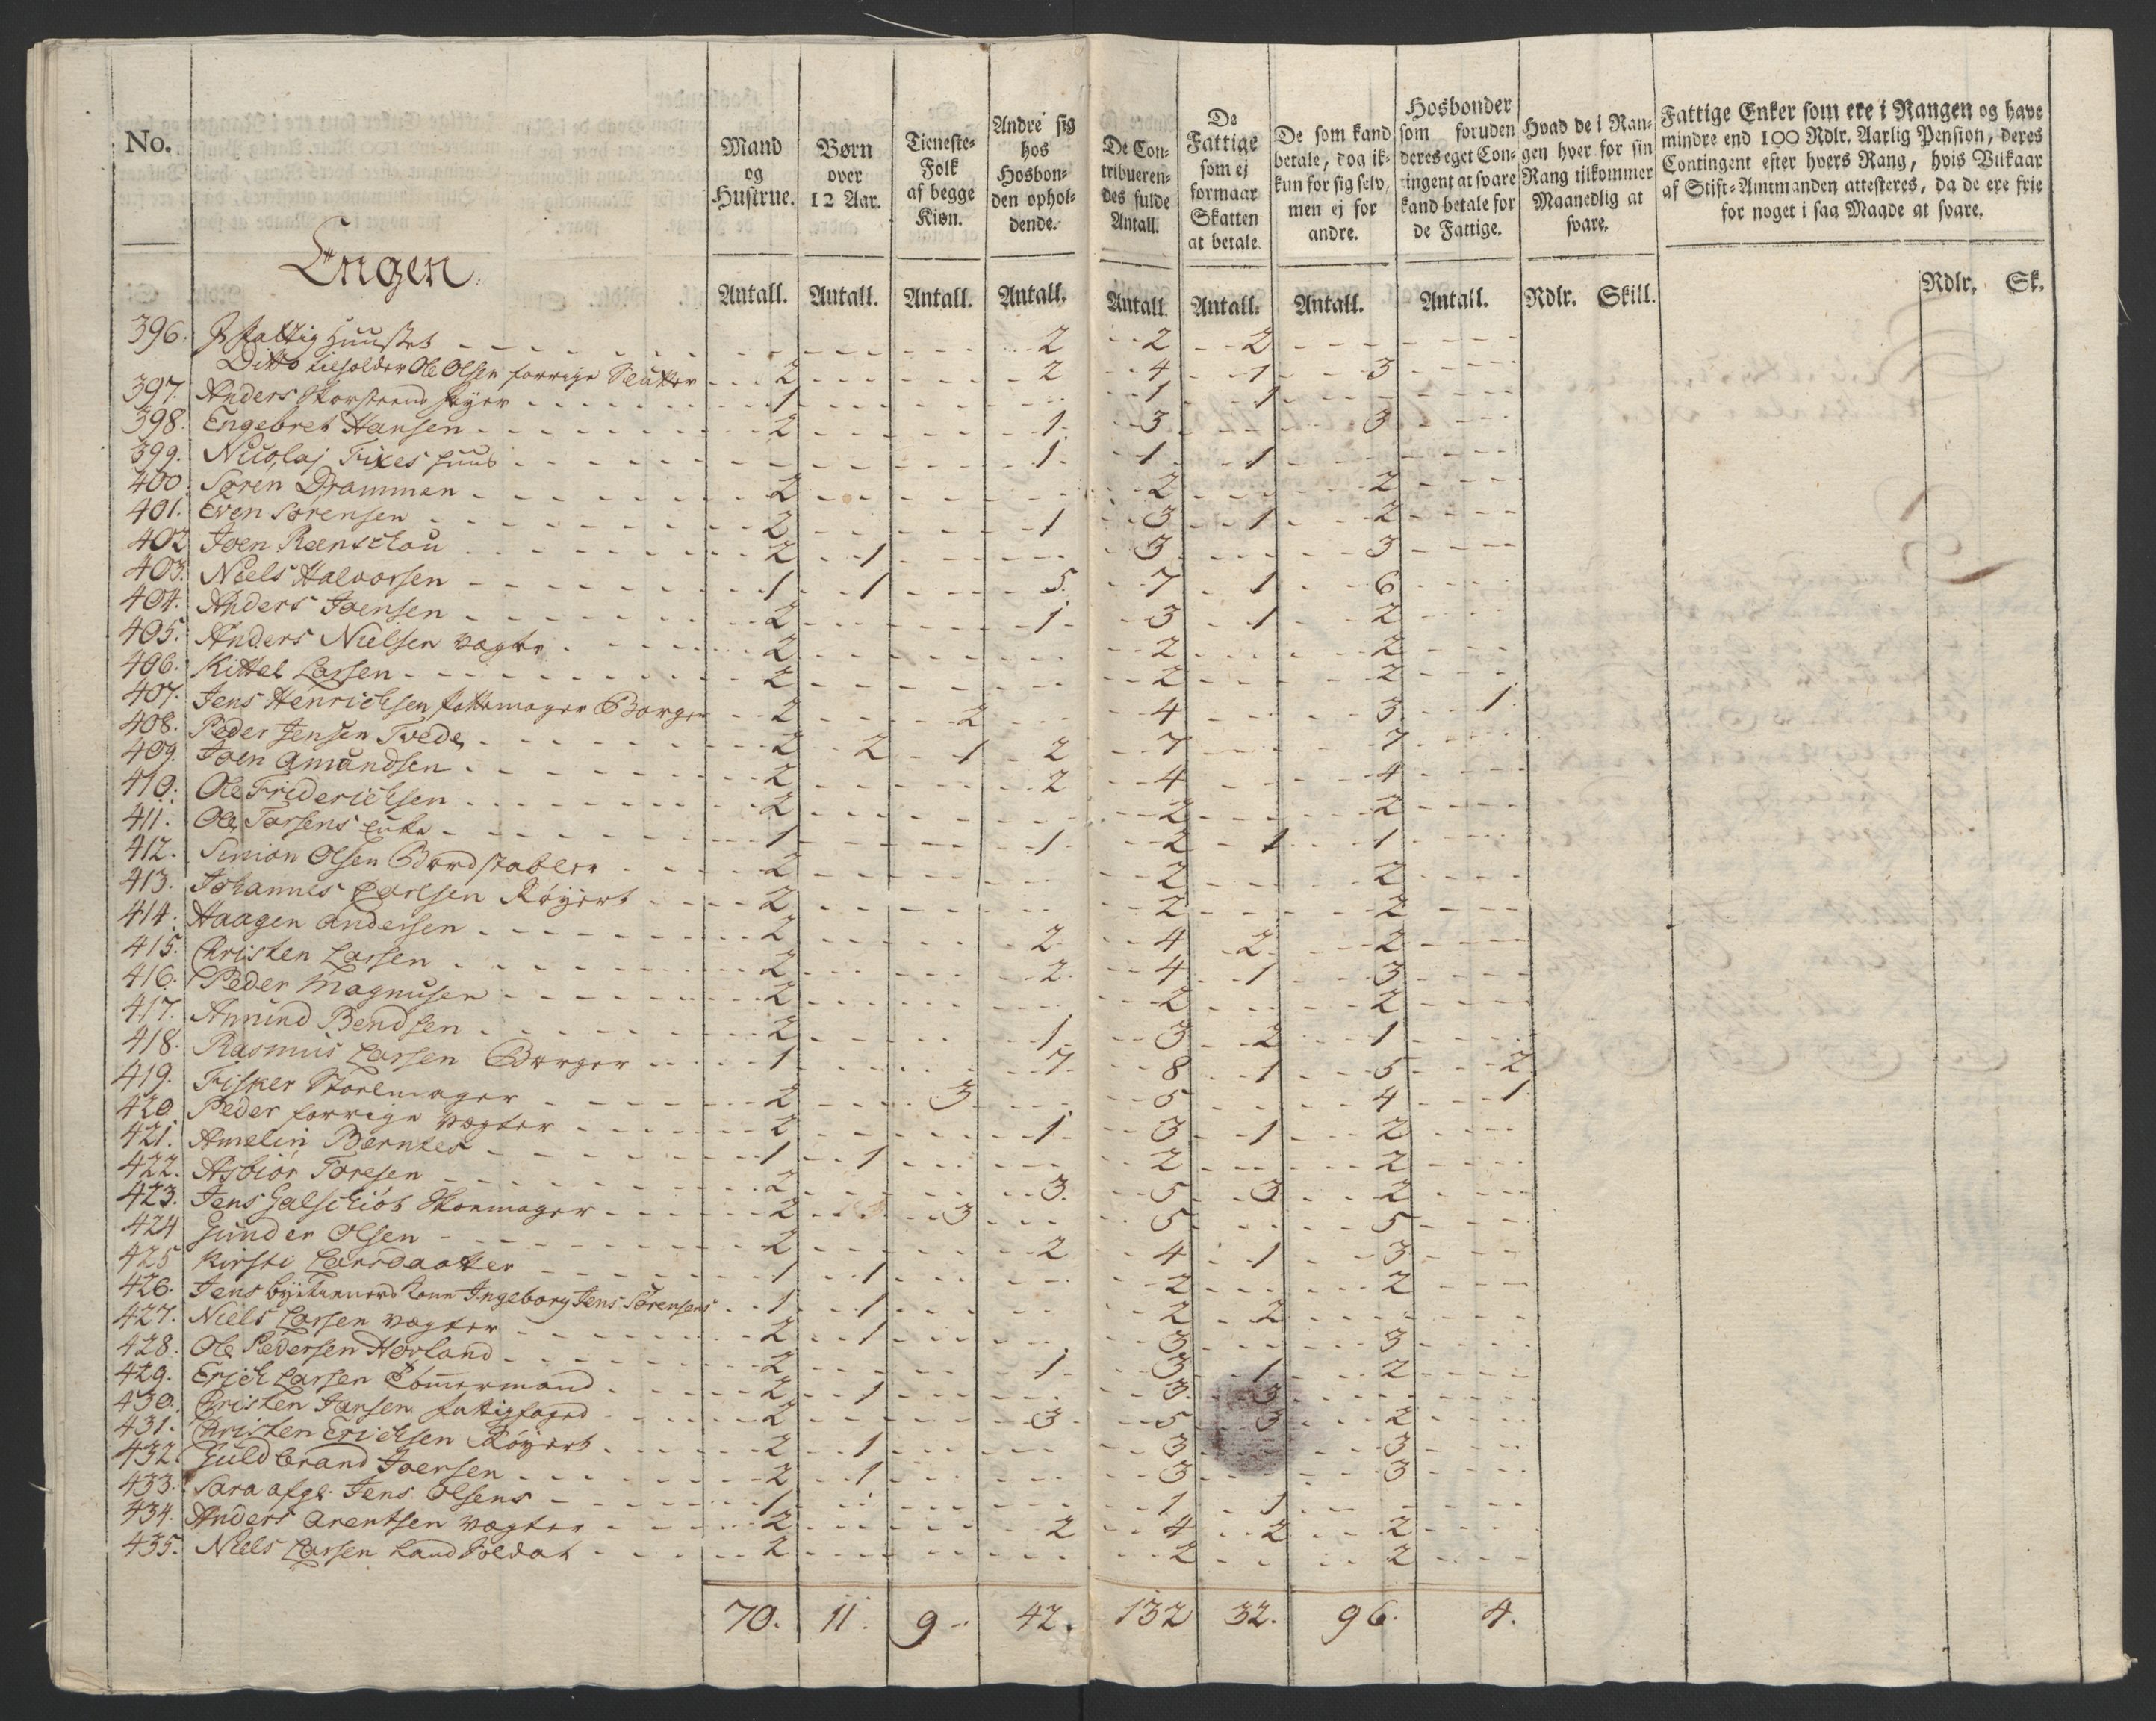 No.
Mand og Hustrue.
Børn over 12 Aar.
Tieneste-Folk af begge Kiøn.
Andre sig hos Hosbonden opholdende.
De Contribuerendes fulde Antall.
De Fattige som ej formaar Skatten at betale.
De som kand betale, dog ikkun for sig selv, men ej for andre.
Hosbonder som foruden deres eget Contingent at svare kand betale for de Fattige.
Hvad de i Rangen hver for sin Rang tilkommer Maanedlig at svare.
Fattige Enker som ere i Rangen og have mindre end 100 Rdlr. Aarlig Pension, deres Contingent efter hvers Rang, hvis Vilkaar af Stift-Amtmanden attesteres, da de ere frie for noget i saa Maade at svare.
Engen.
Antall. Antall. Antall. Antall. Antall. Antall. Antall. Antall. Rdlr. Skill. Rdlr. Sk.
396. Fattig Huuset 2 2 2
Ditto tilholder Ole Olsen forrige Slutter 2 2 4 1 3
397. Anders Skorsteens feyer 1 1 1
398. Engebret Hansen 2 1 3 3
399. Nicolaj Fixes Huus 1 1 1
400. Søren Drammen 2 2 2
401. Even Sørensen 2 1 3 1 2
402 Joen Reenschou 2 1 3 3
403. Niels Halvorsen 1 1 5 7 1 6
404. Anders Joensen 2 1 3 1 2
405. Anders Nielsen vægter 2 2 2
406. Kittel Larsen 2 2 2
407. Jens Henrichsen Borger 2 2 4 3 1
408. Peder Jensen Tvede 2 2 1 2 7 7
409. Joen Amundsen 2 2 4 4
410. Ole Friderichsen 2 2 2
411. Ole Torsens Enke 1 1 2 1 1
412. Simon Olsen Bordstabler 2 2 2
413. Johannes Carlsen Røyert 2 2 2
414. Haagen Andersen 2 2 4 2 2
415. Christen Larsen 2 2 4 1 3
416. Peder Magnusen 2 2 2
417. Amund Bendsen 2 1 3 2 1
418. Rasmus Larsen Borger 1 7 8 1 5 2
419. Fisker Stoelmager 2 3 5 4 1
420. Peder forrige vægter 2 1 3 1 2
421. Amelin Berntes 1 1 2 2
422. Asbiør Toresen 2 3 5 3 2
423. Jens Galschiøt Skoemager 2 3 5 5
424 Gunder Olsen 2 2 4 1 3
425 Kirsti Larsdaatter 1 1 2 2
426. Jens Ingeborg Jens Sørensens 1 1 2 2
427. Niels Larsen vægter 2 1 3 3
428. Ole Pedersen Hovland 2 1 3 1 2
429. Erich Larsen Tømmermand 2 1 3 3
430. Christen Jansen fattigfoged 2 3 5 3 2
431. Christen Erichsen Røyert 2 1 3 3
432. Guldbrand Joensen 2 1 3 3
433. Sara afgl. Jens Olsens 1 1 1
434. Anders Arentsen vægter 2 2 4 2 2
435. Niels Larsen Land Soldat 2 2 2
70. 11. 9 42. 132 32. 96. 4.